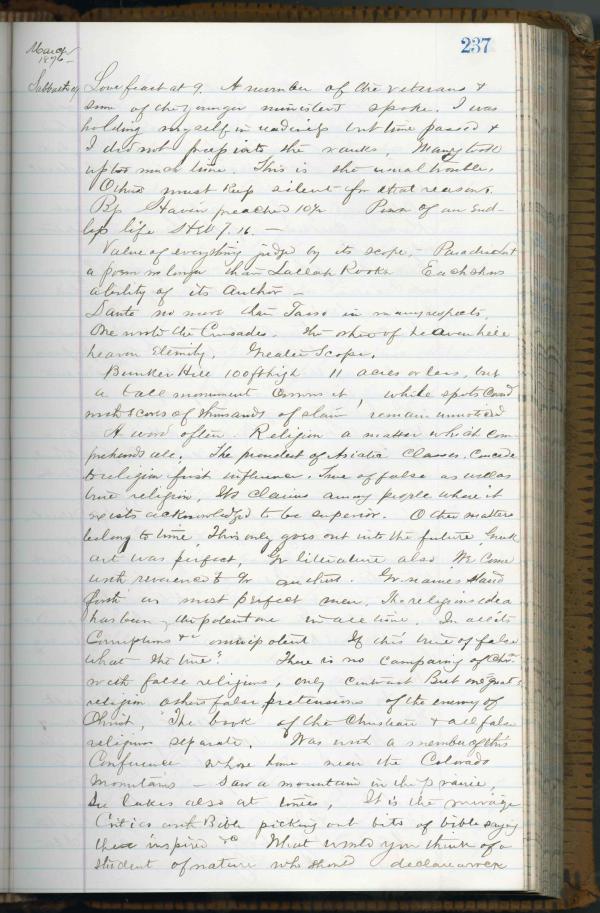 237
March
1876 -
Sabbath 9
Love feast at 9. A number of the veterans &
some of the younger ministers spoke. I was
holding myself in readiness but time passed &
I did not press into the ranks. Many took
up too much time. This is the usual trouble.
Others must keep silent for that reason.
Bp Haven preached 10½ Power of an end-
less life Heb 7.16. -
Value of everything judged by its scope. - Paradise Lost
a poem no longer than Lallah Rookh Each shows
ability of its Author -
Dante no more than Tasso in many respects.
One wrote the Crusades. The other of heaven hell
heaven Eternity. Greater Scope.
Bunker Hill 100 ft high 11 acres or less, but
a tall monument crowns it, while spots covd
with scores of thousands of slain remain unnoticed
A word often. Religion a matter which com-
prehends all. The of Asiatic Classes. concede
to religion first influence. True of false as well as
true religion. Its claims among people where it
exists acknowledged to be superior. Other matters
belong to time This only goes out into the future Greek
art was perfect, Gr literature also We come
with reverence to Gr Gr names stand
forth as most perfect men. The religious idea
has been the potent one in all time. In all its
Corruptions &c omnipotent If this true of false
what the true? There is no comparing of Chrn
with false religions, only contrast But one great
religion others false pretensions of the enemy of
Christ. The book of the Christian & all false
religions separate. Was with a member of this
Conference whose home near the Colorado
mountains - Saw a mountain in the prairie,
See lakes also at times. It is the mirage
Critics with Bible picking out bits of bible saying
these inspired &c What would you think of a
student of nature who should declare a rock